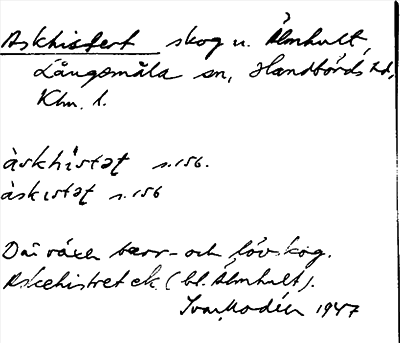 Askhistert skog u. Älmhult,
Långasmåla sn, Handbörds hd,
Klm. l.
àskhìstət s.156.
àskɪstət s.156
Där växer barr- och lövskog.
Askehistret ek. (bl. Älmhult).
Ivar Modéer 1947